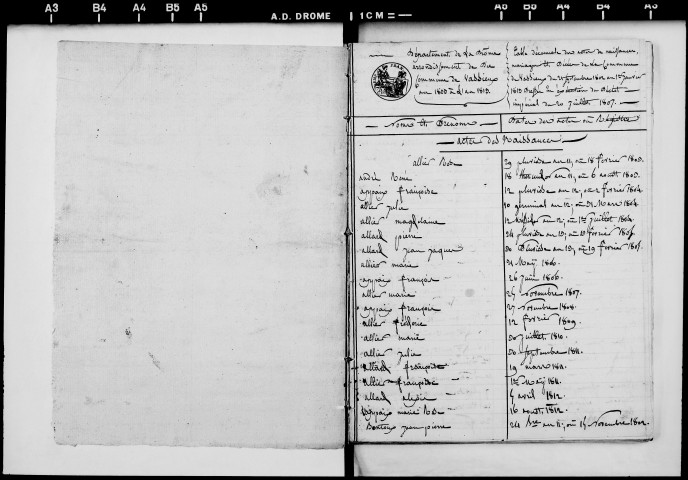 A3 B4 A4 B5 A5
A.D. DROME
1 CM
A5 B5 A4 B4 A3
Département de La Drôme
arrondissement de Die
Commune de Vassieux
an 1800 à L'an 1813.
Table décennale des actes de naissances,
mariages et Décès de La Commune
de Vassieux du 24 septembre 1802 au 1er janvier
1813 Dressée En exécution du Décret
impérial du 20 juillet 1807.
Noms et Prénoms
Dates des actes ou Registre
actes des Naissances
allier Rose 29 pluviôse an 11, ou 18 février 1803.
andré Rose 18 thermidor an 11, ou 6 août 1803.
appaix françoise 12 pluviôse an 12, ou 2 février 1804.
allier julie 10 germinal an 12, ou 31 Mars 1804.
allier magdelaine 12 an 12, ou 1er juillet 1804.
allard pierre 24 pluviôse an 13, ou 13 février 1805.
allard jean jaques 30 Pluviôse an 13, ou 19 février 1805.
allier marie 31 May 1806.
appaix françois 26 juin 1806.
allier marie 25 novembre 1807.
appaix françois 27 novembre 1808.
allier 12 février 1809.
allier marie 30 juillet 1810.
allier julie 30 septembre 1810.
allard françoise 19 mars 1811.
allier françoise 12 May 1811.
allard 5 avril 1812.
appaix marie Rose 16 août 1812.
Bontoux jean pierre 24 an 11, ou 15 novembre 1802.